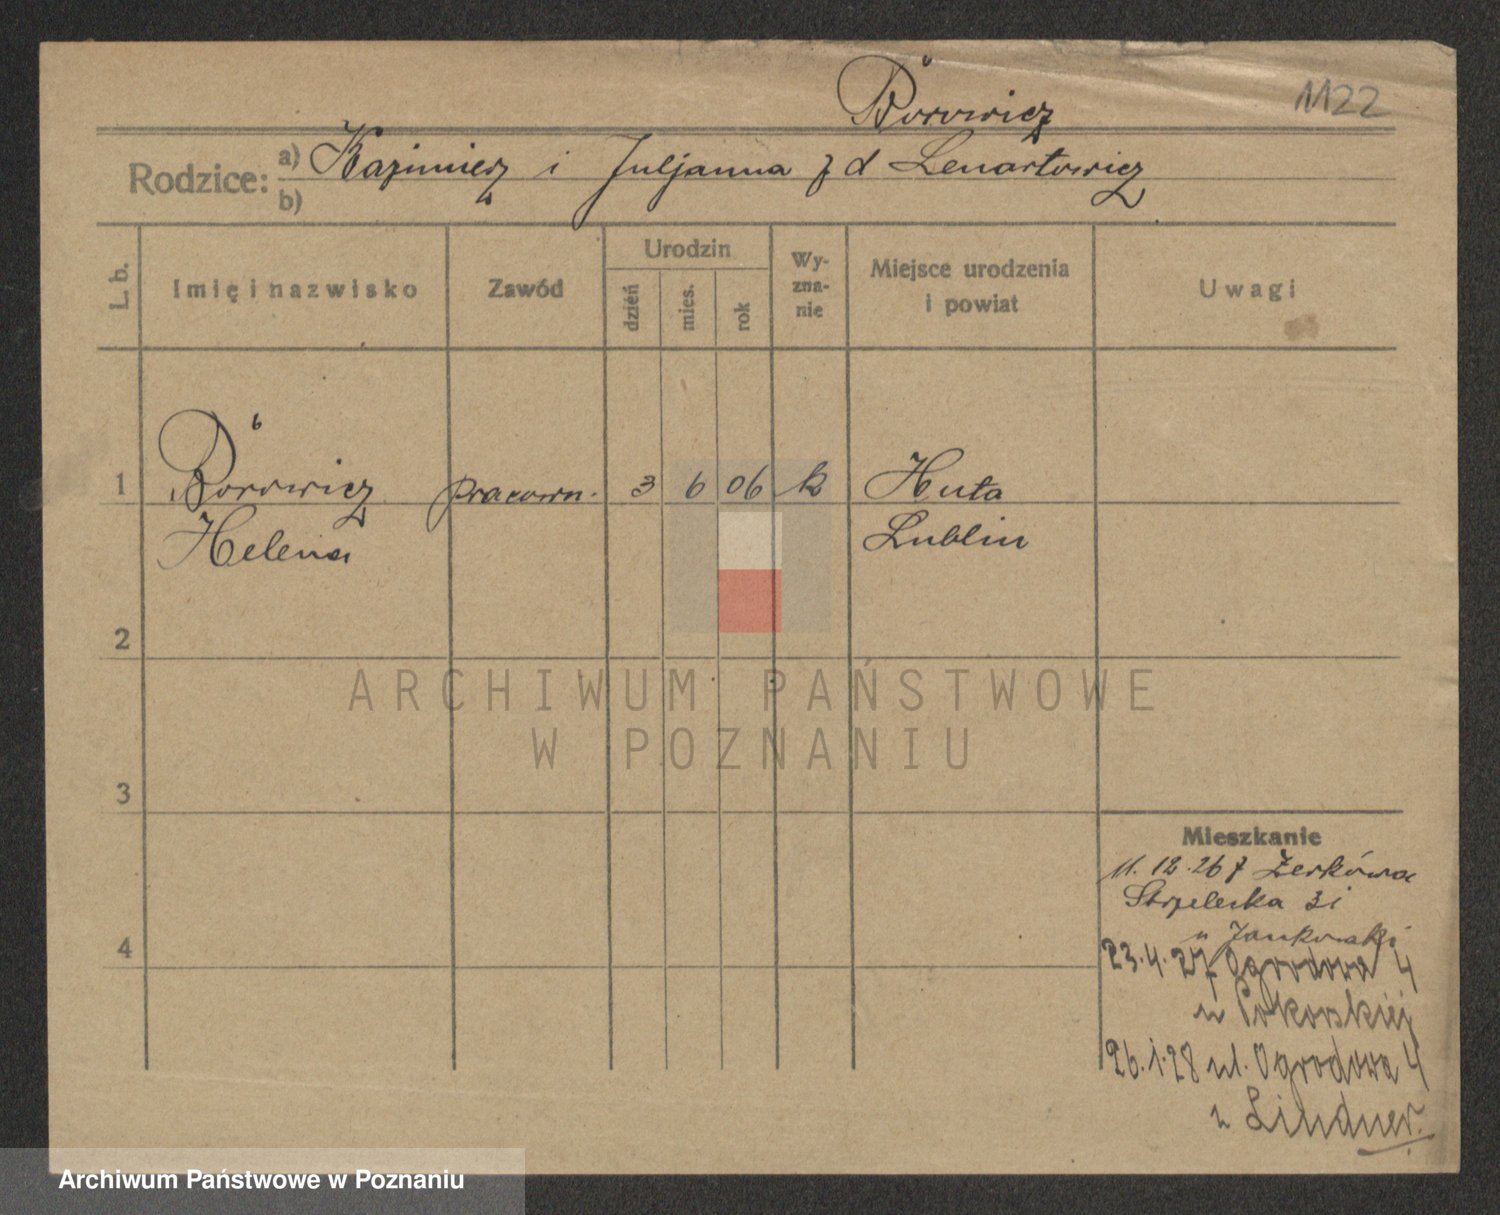 Borowicz
1122
Rodzice: a) Kazimierz i Juljanna z d Lenartowicz
b)
L. b.
Imię i nazwisko
Zawód
Urodzin
dzień
mies.
rok
Wy-
zna-
nie
Miejsce urodzenia
i powiat
Uwagi
1 Borowicz pracown. 3 6 06 k Huta
Helena Lublin
2
3
4
Mieszkanie
11.12.26 z Żerkówa
Strzelecka 31
u Jankowski
23.4.27 Ogrodowa 4
u Pokorskiej
26.1.28 ul. Ogrodowa 4
u Lindner.
ARCHIWUM PAŃSTWOWE
W POZNANIU
Archiwum Państwowe w Poznaniu